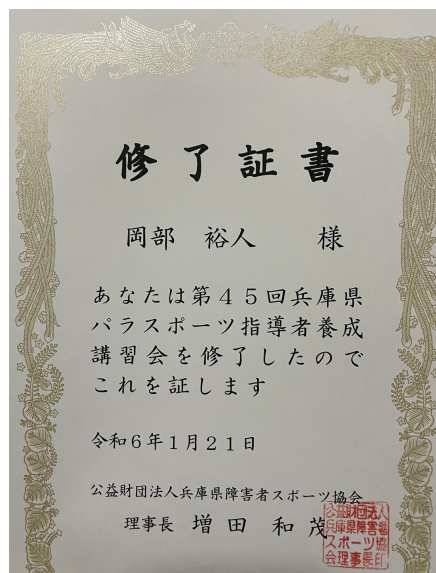 修了証書
岡部 裕人 様
あなたは第45回兵庫県
パラスポーツ指導者養成
講習会を修了したので
これを証します
令和6年1月21日
公益財団法人兵庫県障害者スポーツ協会
理事長 増田 和茂
公益財団法人
兵庫県障害者
スポーツ協
会理事長印